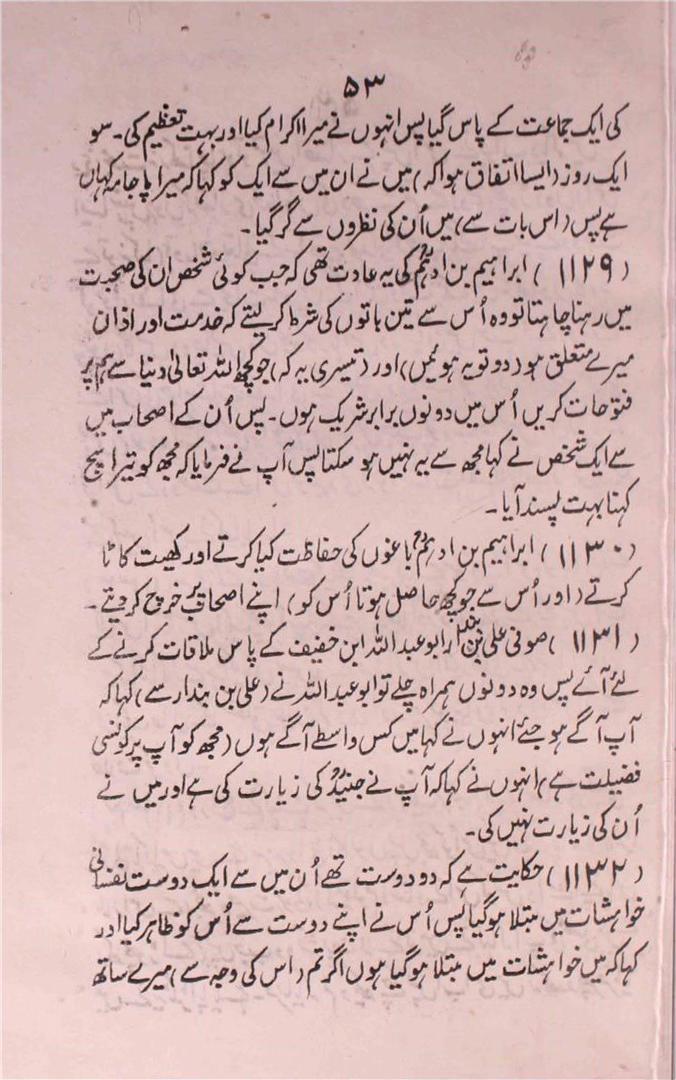 ۵۳
کی ایک جماعت کے پاس گیا پس انہوں نے میرا اکرام کیا اور بہت تعظیم کی۔ سو
ایک روز (ایسا اتفاق ہوا کہ) میں نے ان میں سے ایک کو کہا کہ میرا پاجامہ کہاں
ہے پس (اس بات سے) میں اُن کی نظروں سے گر گیا۔
(۱۱۲۹) ابراہیم بن ادہمؒ کی یہ عادت تھی کہ جب کوئی شخص ان کی صحبت
میں رہنا چاہتا تو وہ اُس سے تین باتوں کی شرط کر لیتے کہ خدمت اور اذان
میرے متعلق ہو (دو تو یہ ہوئیں) اور (تیسری یہ کہ) جو کچھ اللہ تعالیٰ دنیا سے ہم پر
فتوحات کریں اُس میں دونوں برابر شریک ہوں۔ پس اُن کے اصحاب میں
سے ایک شخص نے کہا مجھ سے یہ نہیں ہو سکتا پس آپ نے فرمایا کہ مجھ کو تیرا سچ
کہنا بہت پسند آیا۔
(۱۱۳۰) ابراہیم بن ادہمؒ باغوں کی حفاظت کیا کرتے اور کھیت کاٹا
کرتے (اور اُس سے جو کچھ حاصل ہوتا اُس کو) اپنے اصحاب پر خرچ کر دیتے۔
(۱۱۳۱) صوفی علی بن بندار ابو عبد اللہ ابن خفیف کے پاس ملاقات کرنے کے
لئے آئے پس وہ دونوں ہمراہ چلے تو ابو عبد اللہ نے (علی بن بندار سے) کہا کہ
آپ آگے ہو جئے انہوں نے کہا میں کس واسطے آگے ہوں (مجھ کو آپ پر کونسی
فضیلت ہے) انہوں نے کہا کہ آپ نے جنیدؒ کی زیارت کی ہے اور میں نے
اُن کی زیارت نہیں کی۔
(۱۱۳۲) حکایت ہے کہ دو دوست تھے اُن میں سے ایک دوست نفسانی
خواہشات میں مبتلا ہو گیا پس اُس نے اپنے دوست سے اُس کو ظاہر کیا اور
کہا کہ میں خواہشات میں مبتلا ہو گیا ہوں اگر تم (اس کی وجہ سے) میرے ساتھ